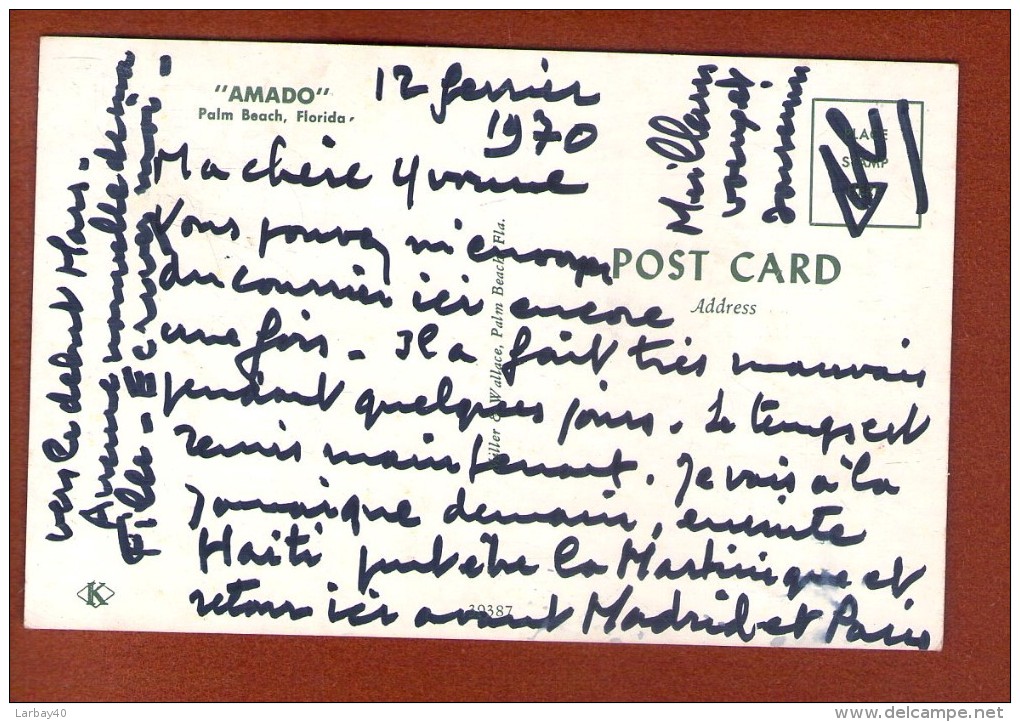 "AMADO"
Palm Beach, Florida
12 fevrier
1970
Ma chère Yvonne
Vous pouvez m'envoyer
du courrier ici encore
une fois. Il a fait très mauvais
pendant quelques jours. Le temps est
remis maintenant. Je vais à la
Jamaique demain, ensuite
Haïti peut être la Martinique et
retour ici avant Madrid et Paris
vers le debut Mars.
Aucune nouvelle de ma
fille - Ecrivez moi -
Meilleurs
voeux et
souvenirs
PLACE
STAMP
HERE
POST CARD
Address
Miller & Wallace, Palm Beach, Fla.
K
39387
Larbay40
http://www.delcampe.net